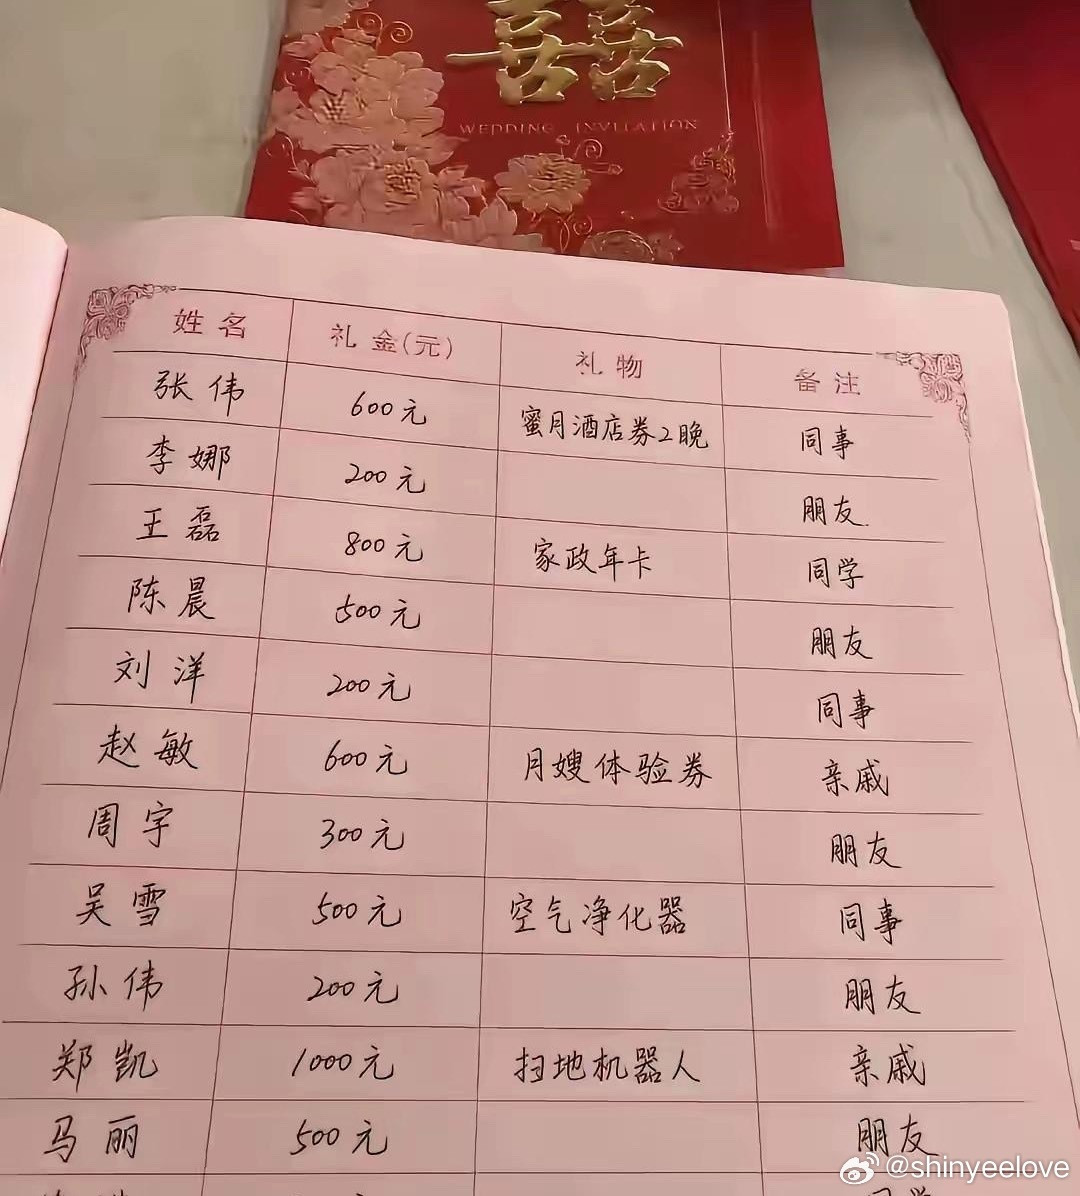 囍
WEDDING INVITATION
姓名 礼金(元) 礼物 备注
张伟 600元 蜜月酒店券2晚 同事
李娜 200元 朋友
王磊 800元 家政年卡 同学
陈晨 500元 朋友
刘洋 200元 同事
赵敏 600元 月嫂体验券 亲戚
周宇 300元 朋友
吴雪 500元 空气净化器 同事
孙伟 200元 朋友
郑凯 1000元 扫地机器人 亲戚
马丽 500元 朋友
@shinyeelove